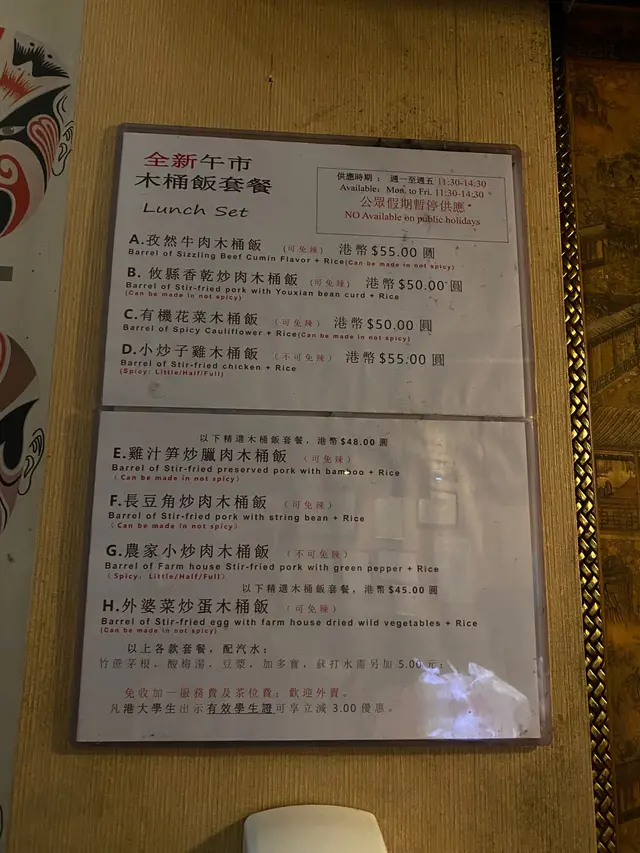 全新午市
木桶飯套餐
Lunch Set
供應時期： 週一至週五 11:30-14:30
Available: Mon. to Fri. 11:30-14:30
公眾假期暫停供應
NO Available on public holidays
A.孜然牛肉木桶飯 (可免辣) 港幣$55.00 圓
Barrel of Sizzling Beef Cumin Flavor + Rice(Can be made in not spicy)
B. 攸縣香乾炒肉木桶飯 (可免辣) 港幣$50.00 圓
Barrel of Stir-fried pork with Youxian bean curd + Rice
(Can be made in not spicy)
C.有機花菜木桶飯 (可免辣) 港幣$50.00 圓
Barrel of Spicy Cauliflower + Rice(Can be made in not spicy)
D.小炒子雞木桶飯 (不可免辣) 港幣$55.00 圓
Barrel of Stir-fried chicken + Rice
(Spicy: Little/Half/Full)
以下精選木桶飯套餐，港幣$48.00 圓
E.雞汁笋炒臘肉木桶飯 (可免辣)
Barrel of Stir-fried preserved pork with bamboo + Rice
(Can be made in not spicy)
F.長豆角炒肉木桶飯 (可免辣)
Barrel of Stir-fried pork with string bean + Rice
(Can be made in not spicy)
G.農家小炒肉木桶飯 (不可免辣)
Barrel of Farm house Stir-fried pork with green pepper + Rice
(Spicy: Little/Half/Full)
以下精選木桶飯套餐，港幣$45.00 圓
H.外婆菜炒蛋木桶飯 (可免辣)
Barrel of Stir-fried egg with farm house dried wild vegetables + Rice
(Can be made in not spicy)
以上各款套餐，配汽水：
竹蔗茅根，酸梅湯，豆漿，加多寶，蘇打水需另加 5.00 元；
免收加一服務費及茶位費；歡迎外賣。
凡港大學生出示有效學生證可享立減 3.00 優惠。